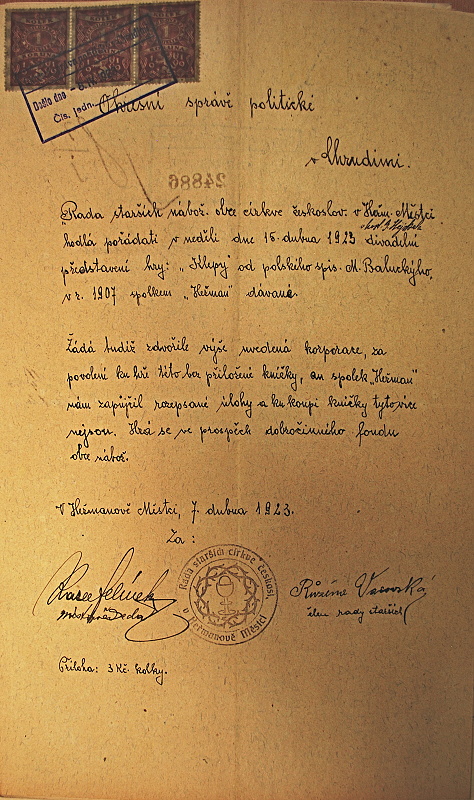 KOLEK 1 KORUNA
KOLEK 1 KORUNA
KOLEK 1 KORUNA
Došlo dne
Čís. jedn.
Okresní správě politické
v Chrudimi.
24886
Rada starších nábož. obce církve českoslov. v Heřm. Městci
hodlá pořádati v neděli dne 15. dubna 1923 divadelní
představení hry: „Klepy" od polského spis. M. Baluckýho,
v r. 1907 spolkem „Heřman" dávané.
Žádá tudíž zdvořile výše uvedená korporace, za
povolení ku hře této bez přiložené knížky, an spolek „Heřman"
nám zapůjčil rozepsané úlohy a ku koupi knížky tyto více
nejsou. Hrá se ve prospěch dobročinného fondu
obce nábož.
V Heřmanově Městci, 7. dubna 1923.
Za:
Rada starších církve českosl.
v Heřmanově Městci
Růžena
člen rady starších
Příloha: 3 Kč. kolky.